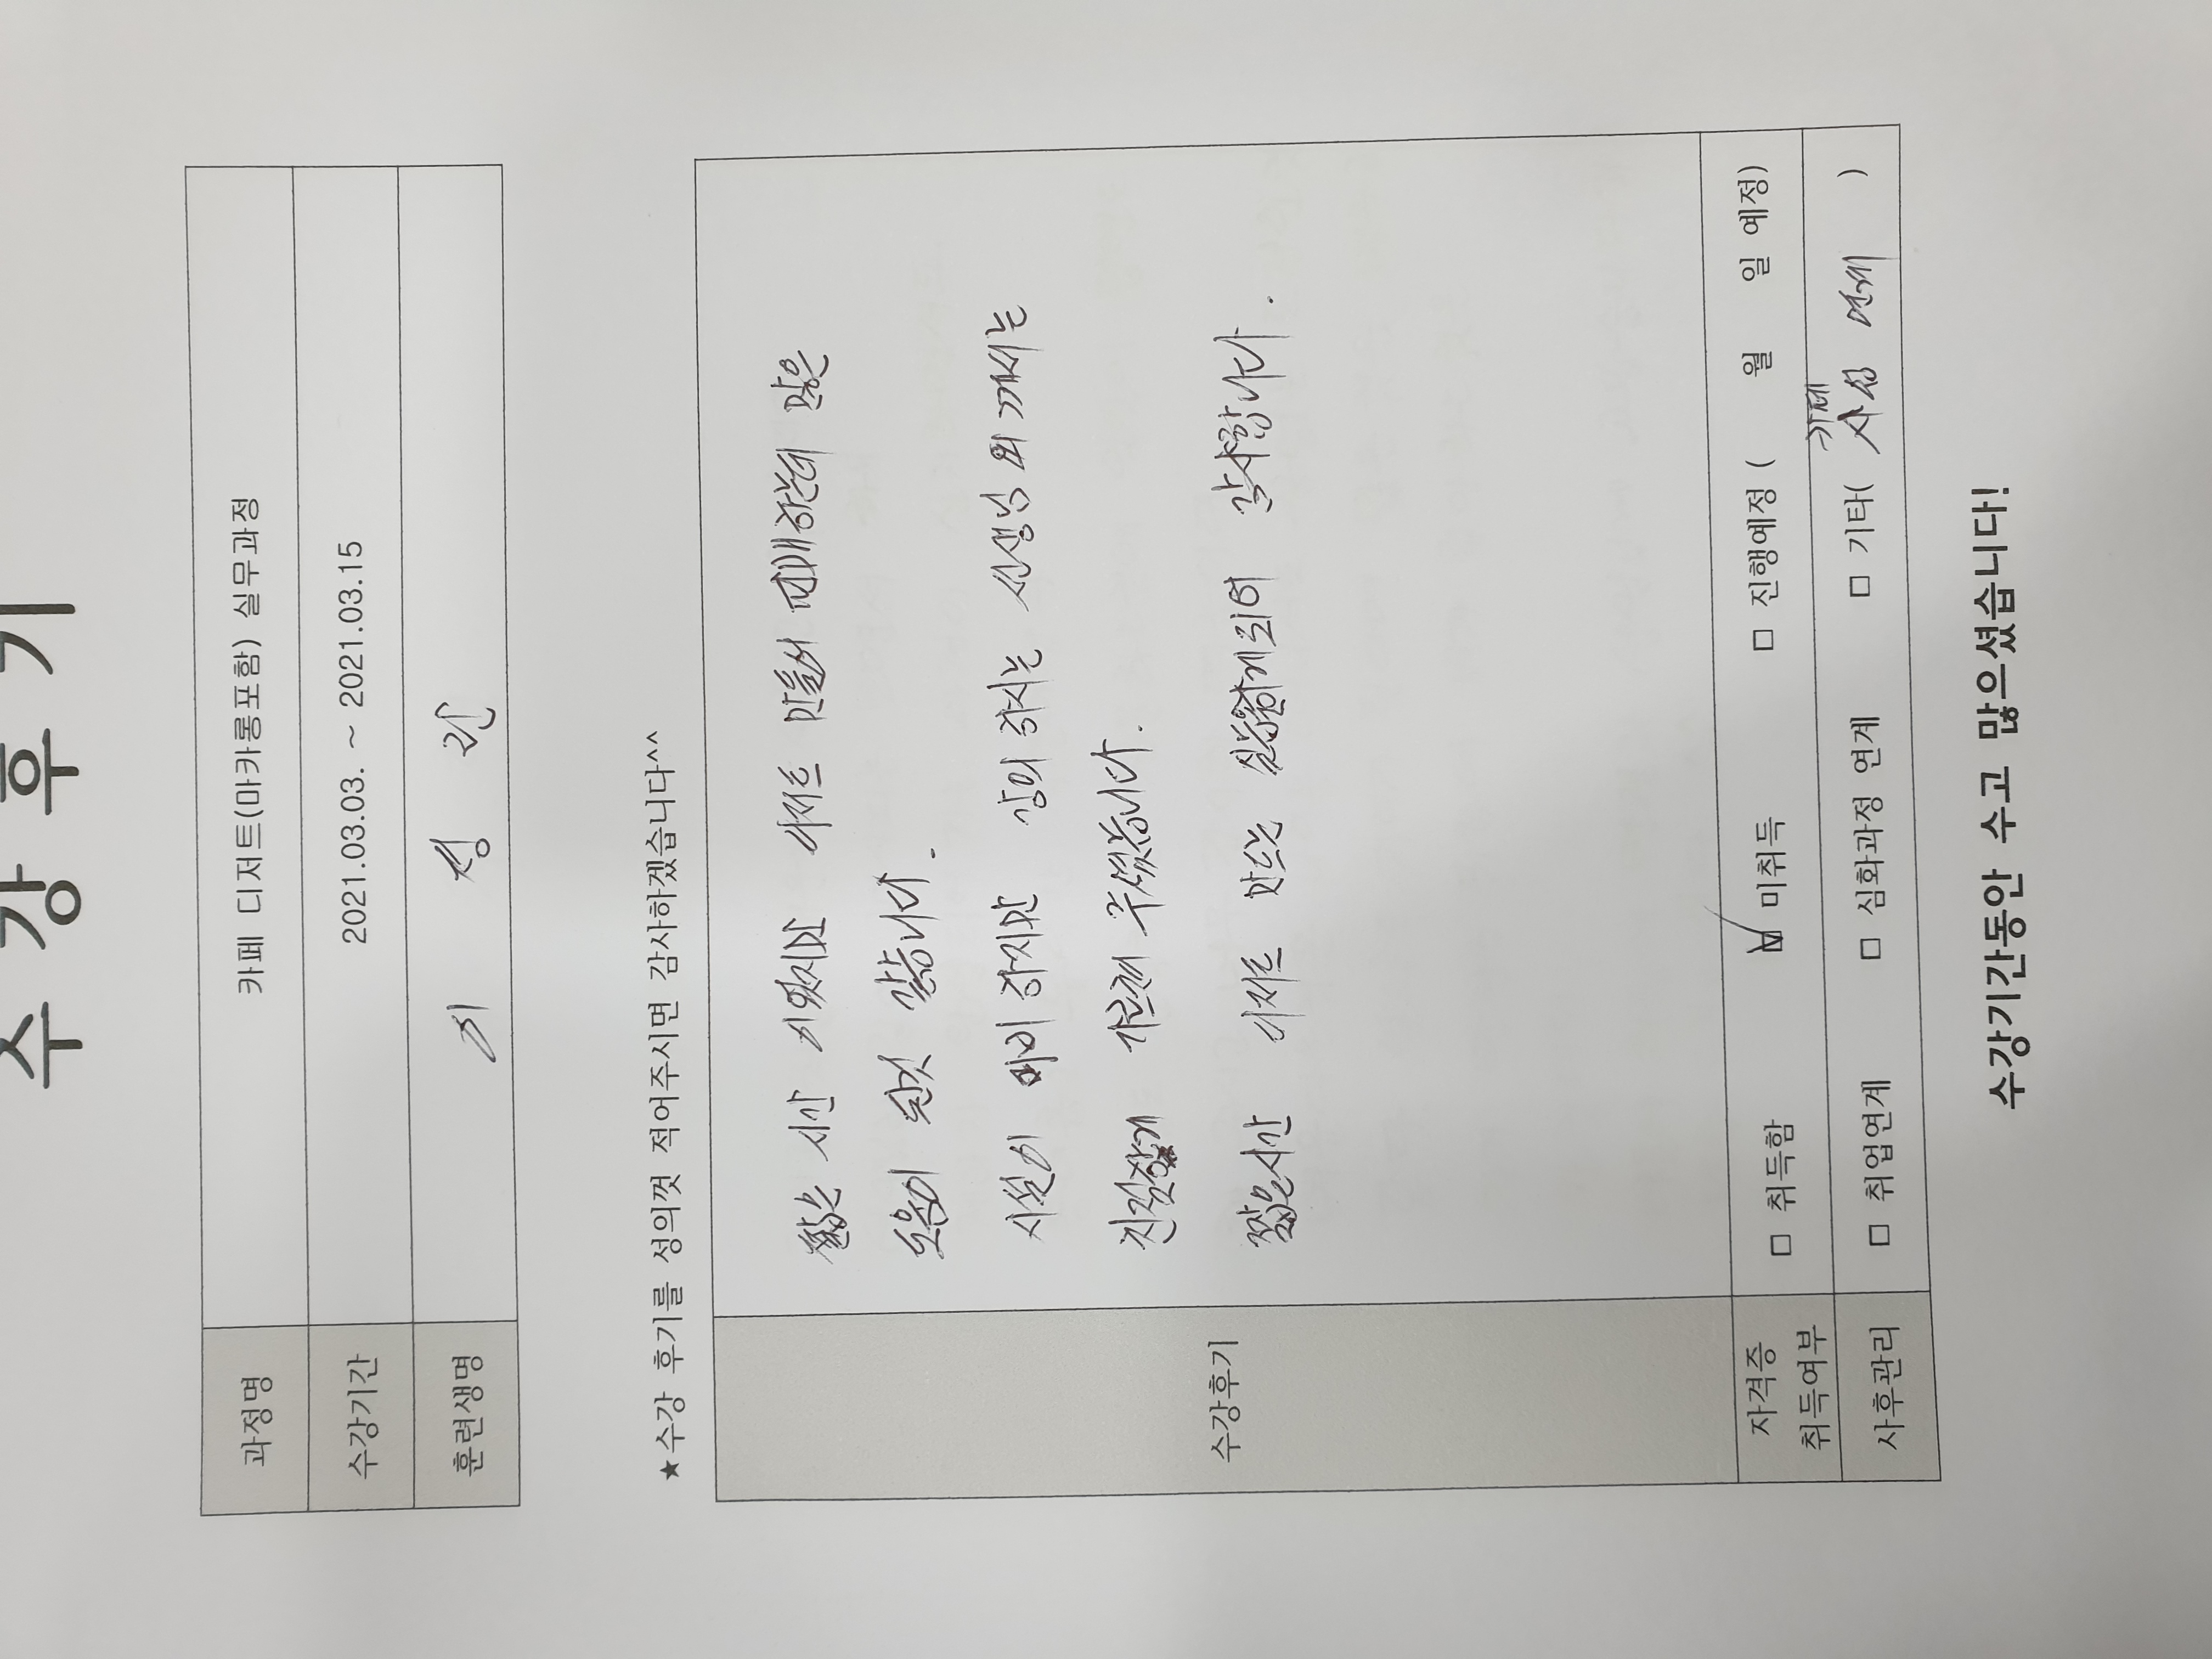 수 강 후 기
과정명 카페 디저트(마카롱포함) 실무과정
수강기간 2021.03.03. ~ 2021.03.15
훈련생명
★수강 후기를 성의껏 적어주시면 감사하겠습니다^^
수강후기
짧은 시간 이었지만 디저트 만들어 판매하는데 많은
도움이 된것 같습니다.
시설이 미비 하지만 강의 하시는 선생님 께서는
친절하게 가르쳐 주셨습니다.
짧은시간 디저트 만드는 실습하게되어 감사합니다.
자격증 취득여부 □ 취득함 ☑ 미취득 □ 진행예정 ( 월 일 예정)
사후관리 □ 취업연계 □ 심화과정 연계 □ 기타( 연계 )
수강기간동안 수고 많으셨습니다!